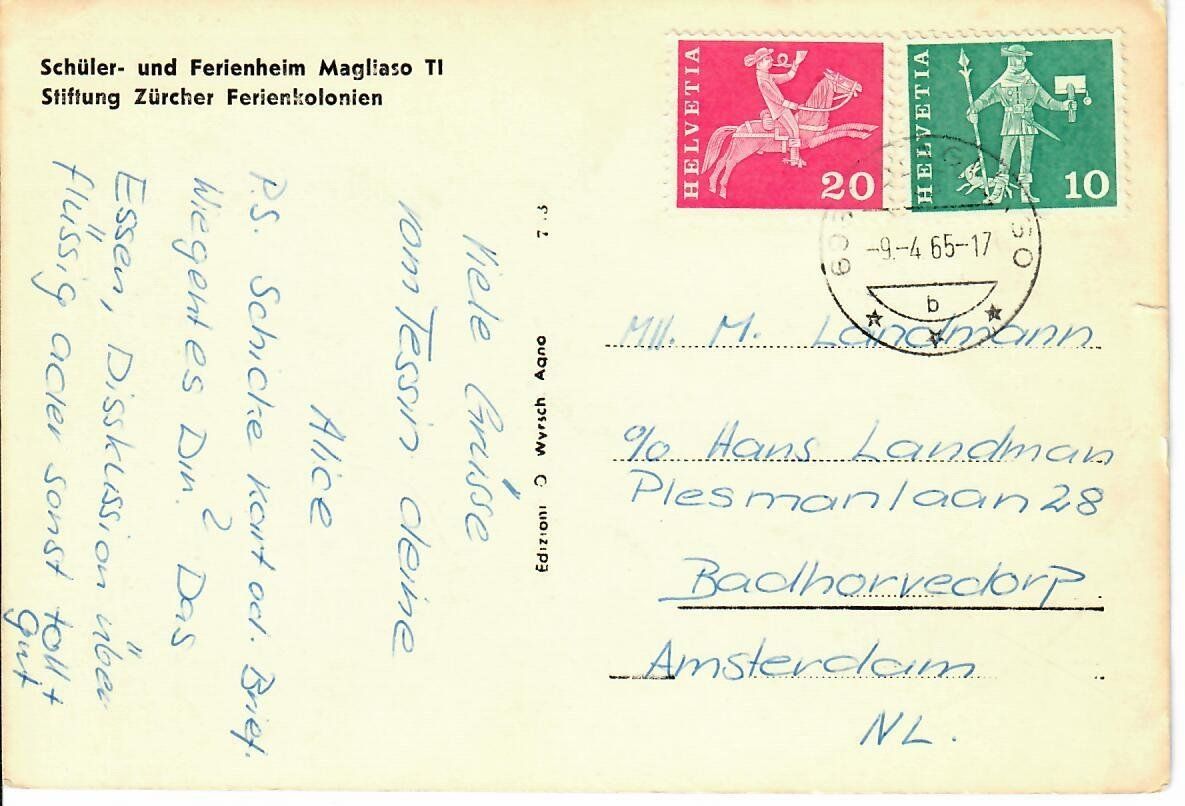 Schüler- und Ferienheim Magliaso TI
Stiftung Zürcher Ferienkolonien
Viele Grüsse
vom Tessin deine
Alice
P.S. Schicke Kart od. Brief.
Wiegeht es Dir? Das
Essen, Disskussion über
flüssig oder sonst
gut
Edizioni O Wyrsch Agno
HELVETIA
20
HELVETIA
10
-9.-4 65-17
b
Mll. M. Landmann
c/o Hans Landman
Plesmanlaan 28
Badhorvedorp
Amsterdam
NL.